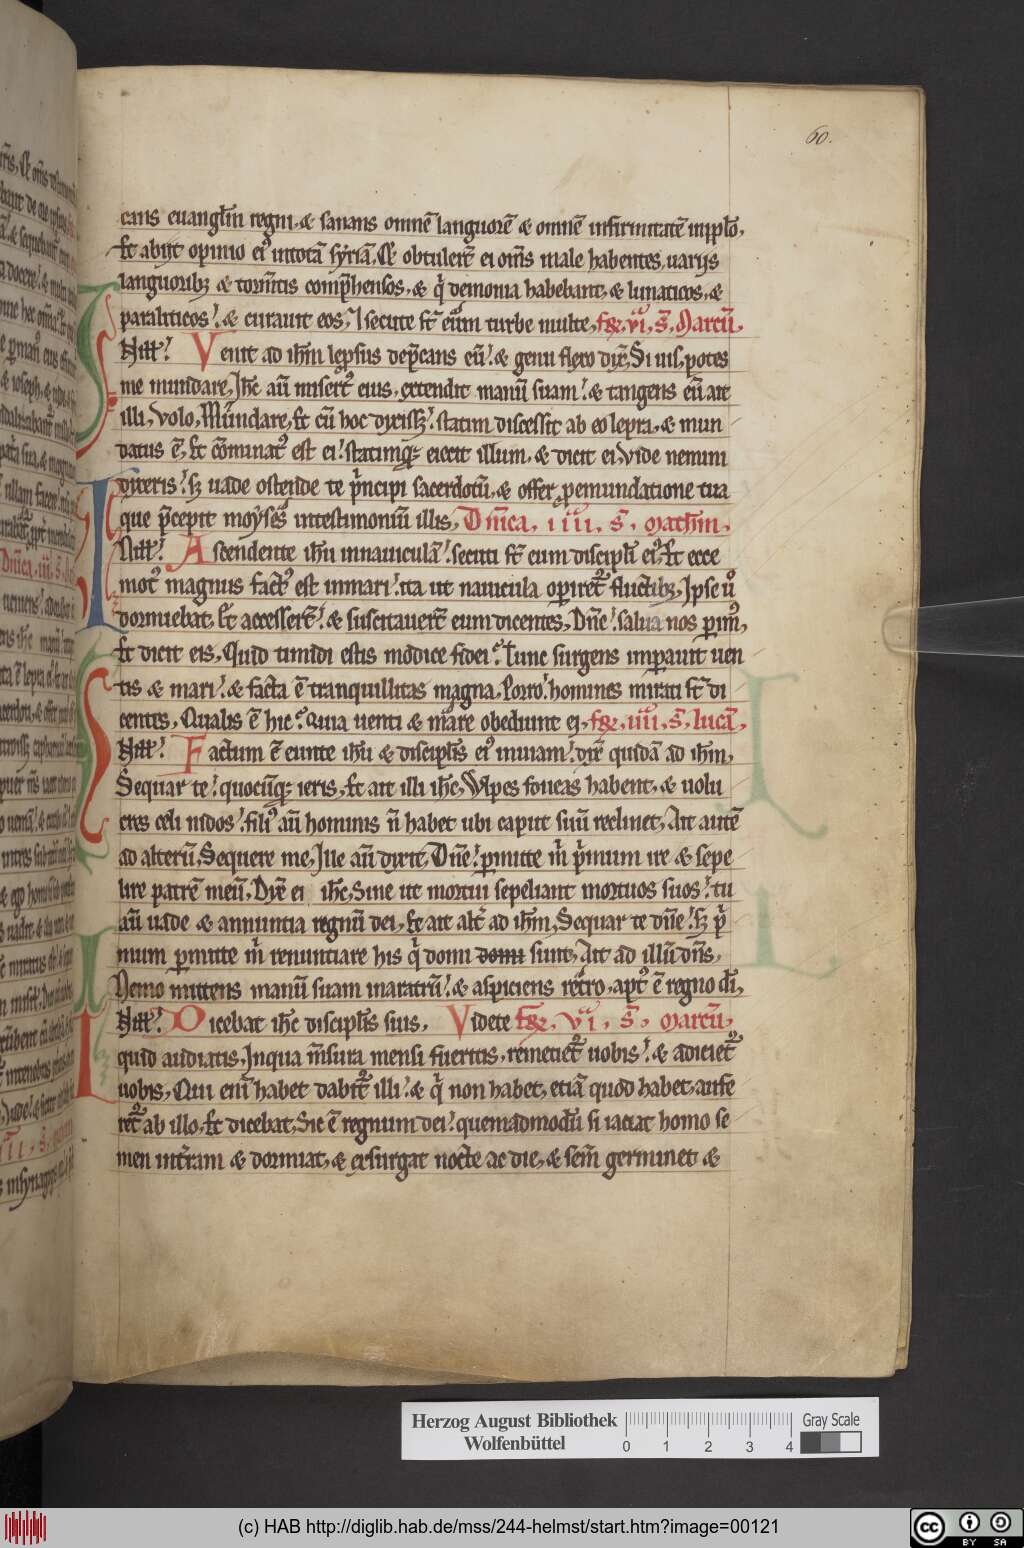 60.
cans euangłm regni, & sanans omnē languorē & omnē infirmitatē inpplō,
Et abijt opinio ei᾿ intotā syriā, Et obtulert̄ ei om̄s male habentes, uarijs
languoribꝫ & torm̄tis comp̄hensos, & q̇ demonia habebant, & lunaticos, &
paraliticos! & curauit eos, Isecute st̄ eūm turbe multe, fꝫ, vi, s̄, Marcū,
N ill! Venit ad ihm̄ lepsus dep̄cans eū! & genu flexo dix̄, Si uis, potes
me mundare, Ihc̄ aū misert᾿ eius, extendit manū suam! & tangens eū ait
illi, Volo, Mundare, Et cū hoc dixissꝫ! statim discessit ab eo lepra, & mun
datus ē, Et cōminat᾿ est ei! statimqꝫ eiecit illum, & dicit ei Vide nemini
dixeris! sꝫ uade ostende te p̄ncipi sacerdotū, & offer pemundatione tua
que p̄cepit moyses intestimoniū illis, Dn̄ica, iiii, s̄, mathm̄,
N ill! Ascendente ihu innauiculā! secuti st̄ eum discipli ei᾿, Et ecce
mot᾿ magnus fact᾿ est inmari! ita ut nauicula opiret᾿ fluctibꝫ, Ipse u᷎
dormiebat, Et accessert̄! & suscitauert̄ eum dicentes, Dn̄e! salua nos pim᾿,
Et dicit eis, Quid timidi estis modice fidei? Tunc surgens impauit uen
tis & mari! & facta ē tranquillitas magna, Porro! homines mirati st̄ di
centes, Qualis ē hic? Quia uenti & mare obediunt ei, fꝫ, iiii, s̄, lucā,
N ill! Factum ē eunte ihu & disciplis ei᾿ inuiam! dix̄ quidā ad ihm̄,
Sequar te! quocūqꝫ ieris, Et ait illi ihc̄, Vulpes foueas habent, & uolu
cres celi nidos! fili᾿ aū hominis n̄ habet ubi caput suū reclinet, Ait autē
ad alterū, Sequere me, Ille aū dixit, Dn̄e! pmitte m̄ p̄mum ire & sepe
lire patrē meū, Dix̄ ei ihc̄, Sine ut mortui sepeliant mortuos suos! tu
aū uade & annuntia regnū dei, Et ait alt̄ ad ihm̄, Sequar te dn̄e! sꝫ p̄
mum pmitte m̄ renuntiare his q̇ domi domi sunt, Ait ad illū dn̄s,
Nemo mittens manū suam inaratrū! & aspiciens retro, apt᾿ ē regno dī,
N ill! Dicebat ihc̄ disciplis suis, Videte fꝫ, vi, s̄, marcū,
quid audiatis, Inqua m̄sura mensi fueritis, remetiet᾿ uobis! & adiciet᾿
uobis, Qui enī habet dabit᾿ illi! & q̇ non habet, etiā quod habet, aufe
ret᾿ ab illo, Et dicebat, Sic ē regnum dei! quemadmodū si iaciat homo se
men int̄ram & dormiat, & exsurgat nocte ac die, & sem̄ germinet &
Herzog August Bibliothek
Wolfenbüttel
0 1 2 3 4
Gray Scale
(c) HAB http://diglib.hab.de/mss/244-helmst/start.htm?image=00121
cc BY SA